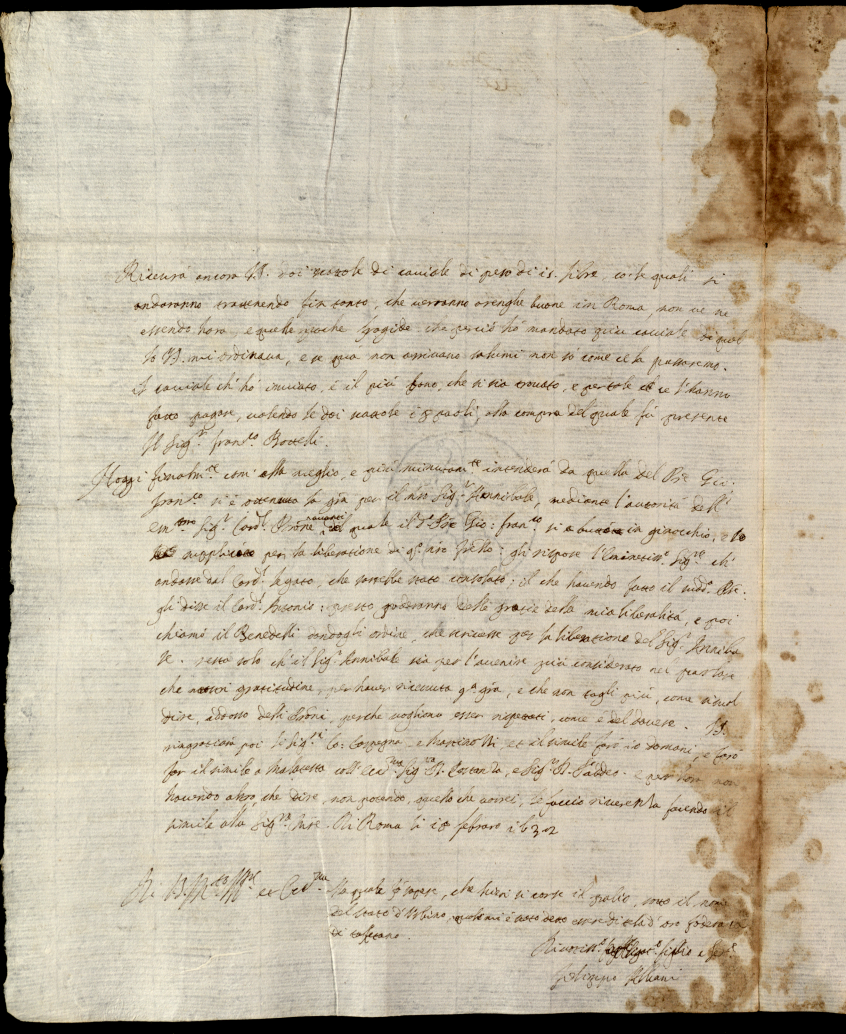 Riceverà ancora V.S. doi scatole di caviale di peso di 15. libre, co le quali si
andaranno trattenendo fin tanto, che verranno arenghe buone in Roma, non ve ne
essendo hora, e quelle poche fragide, che perciò hò mandato più caviale di quel
lo V.S. mi ordinava, e se qua non arrivano salumi non sò come ce la passaremo.
Il caviale ch'hò inviato, è il più bono, che si sia trovato, e per tale ce l'hanno
fatto pagare, valendo le doi scatole paoli, alla compra del quale fù presente
Il Sig.r Fran.co Bottelli.
Hoggi finalm.te com' alla meglio, e più minutam.te intenderà da quella del Gio:
Fran.co si è ottenuta la gra per il nro Sig.r Annibale, mediante l'autorità dell'
Em.mo Sig.r Card.l avanti del quale il Gio: Fran.co si è buttato in ginocchio, e lo
supplicato per la liberatione di q.o nro gli rispose l'Eminentis.o Sig.re ch'
andasse dal Card.l legato, che sarebbe stato consolato; il che havendo fatto il sudd.o
gli disse il Card.l Antonio: presto goderanno delle grazie della mia liberalità, e poi
chiamò il Benedetti dandogli ordine, che scrivesse per la liberatione del Sig.r Anniba
le. resta solo ch'il Sig.r Annibale sia per l'avenire più considerato nel parlare
che mostri gratitudine, per haver ricevuta q.a gra, e che non tagli più, come si suol
dire, adosso delli Proni, perche vogliono esser rispettati, come è del dovere. V.S.
ringratiarà poi le Sig.re Co: Carpegna, e Martinozzi, et il simile farò io domani, e farò
far il simile a Malatesta coll' Ecc.ma Sig.ra D. Costanza, e Sig.r D. Taddeo. e per non
havendo altro, che dire, non potendo, quello che vorrei, le faccio riverenza facendo il
simile alla Sig.ra Di Roma li 18 febraro 1632
Di V.S. M.to Ill.re et Ecc.ma La quale sapesse, che hieri si corse il palio, sotto il nome
del stato d'Urbino, e stato detto esser di tela d'oro foderata
di taffetano.
figlio e ser.re
Filippo Albani